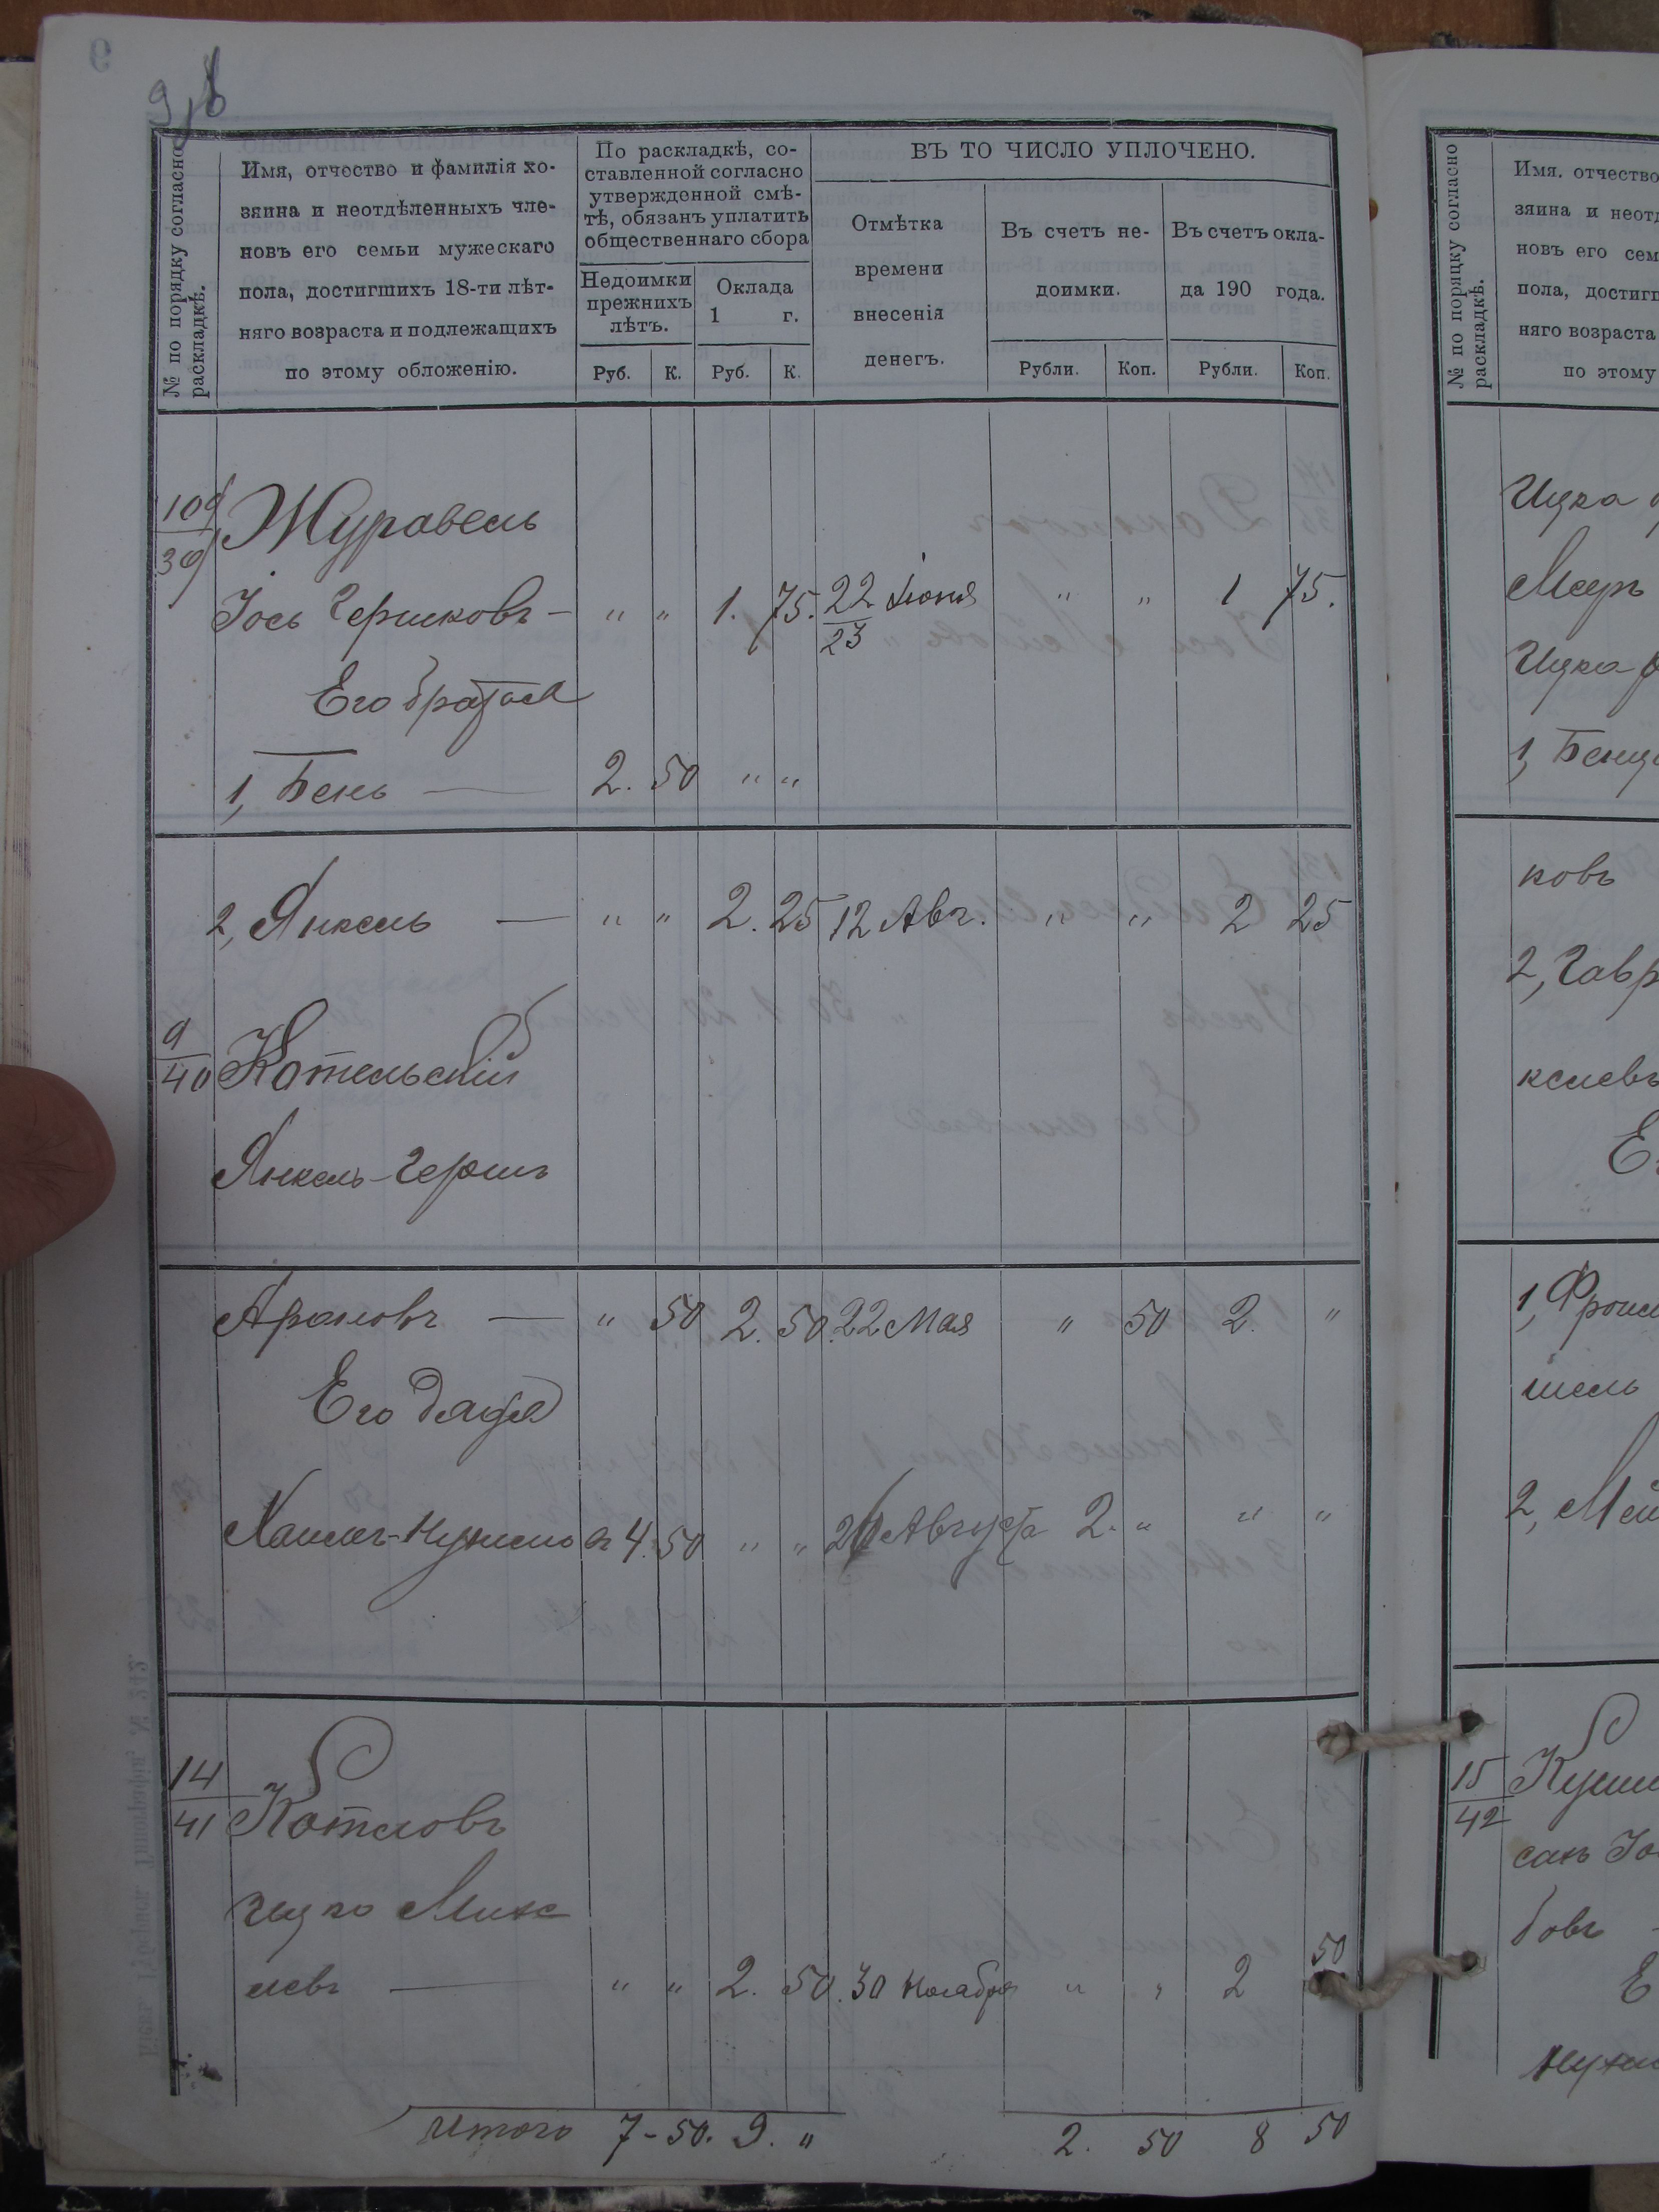 № по порядку согласно
раскладкѣ.
Имя, отчество и фамилія хо-
зяина и неотдѣленныхъ чле-
новъ его семьи мужескаго
пола, достигшихъ 18-ти лѣт-
няго возраста и подлежащихъ
по этому обложенію.
По раскладкѣ, со-
ставленной согласно
утвержденной смѣ-
тѣ, обязанъ уплатить
общественнаго сбора
Недоимки
прежнихъ
лѣтъ.
Оклада
1 г.
ВЪ ТО ЧИСЛО УПЛОЧЕНО.
Отмѣтка
времени
внесенія
денегъ.
Въ счетъ не-
доимки.
Въ счетъ окла-
да 190 года.
Руб. К. Руб. К. Рубли. Коп. Рубли. Коп.
109
39
Журавель
Іось Гершковъ — " " 1. 75. 22 Іюня " " 1 75.
23
Его братья
1, Бень — 2. 50 " "
2, Янкель — " " 2. 25 12 Авг. " " 2 25
9
40
Котельскій
Янкель-Гершъ
Ароновъ — " 50 2. 50. 22 Мая " 50 2. "
Его дядя
4. 50 " " Август 2. " " "
14
41
Котловъ
левъ — " " 2. 50. 30 Ноября " " 2 50
Итого 7-50. 9. " 2. 50 8 50
№ по порядку согласно
раскладкѣ.
Имя. отчество
зяина и неотд
новъ его сем
пола, достиг
няго возраста
по этому
Ицка
Меерь
Ицка
1, Бенц
ковъ
2, Гавр
кслевъ
Е
1, Фроим
шель
2, Мей
15
42
Кушн
бовъ
Е